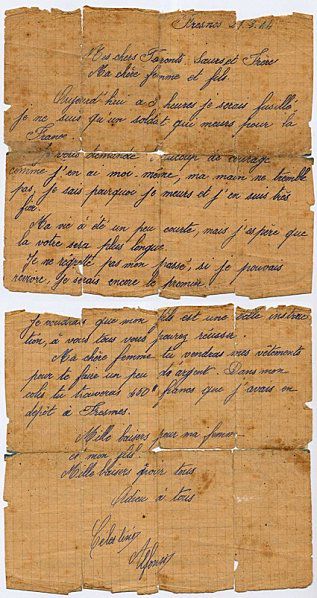 Fresnes 21.2.44
Mes chers Parents, sœurs et Frère
Ma chère femme et fils.
Aujourd'hui à 3 heures je serais fusillé
je ne suis qu'un soldat qui meurs pour la
France
vous demande beaucoup de courage
comme j'en ai moi-même, ma main ne tremble
pas, je sais pourquoi je meurs et j'en suis très
fier.
Ma vie à été un peu courte, mais j'espère que
la votre sera plus longue.
Je ne regrette pas mon passé, si je pouvais
revivre, je serais encore le premier.
Je voudrais que mon fils est une belle instruc
tion, à vous tous vous pouvez réussir.
Ma chère femme tu vendras mes vêtements
pour te faire un peu de argent. Dans mon
colis tu trouveras francs que j'avais en
dépôt à Fresnes.
Mille baisers pour ma femme
et mon fils.
Mille baisers pour tous
Adieu à tous
Celestino
Alfonso